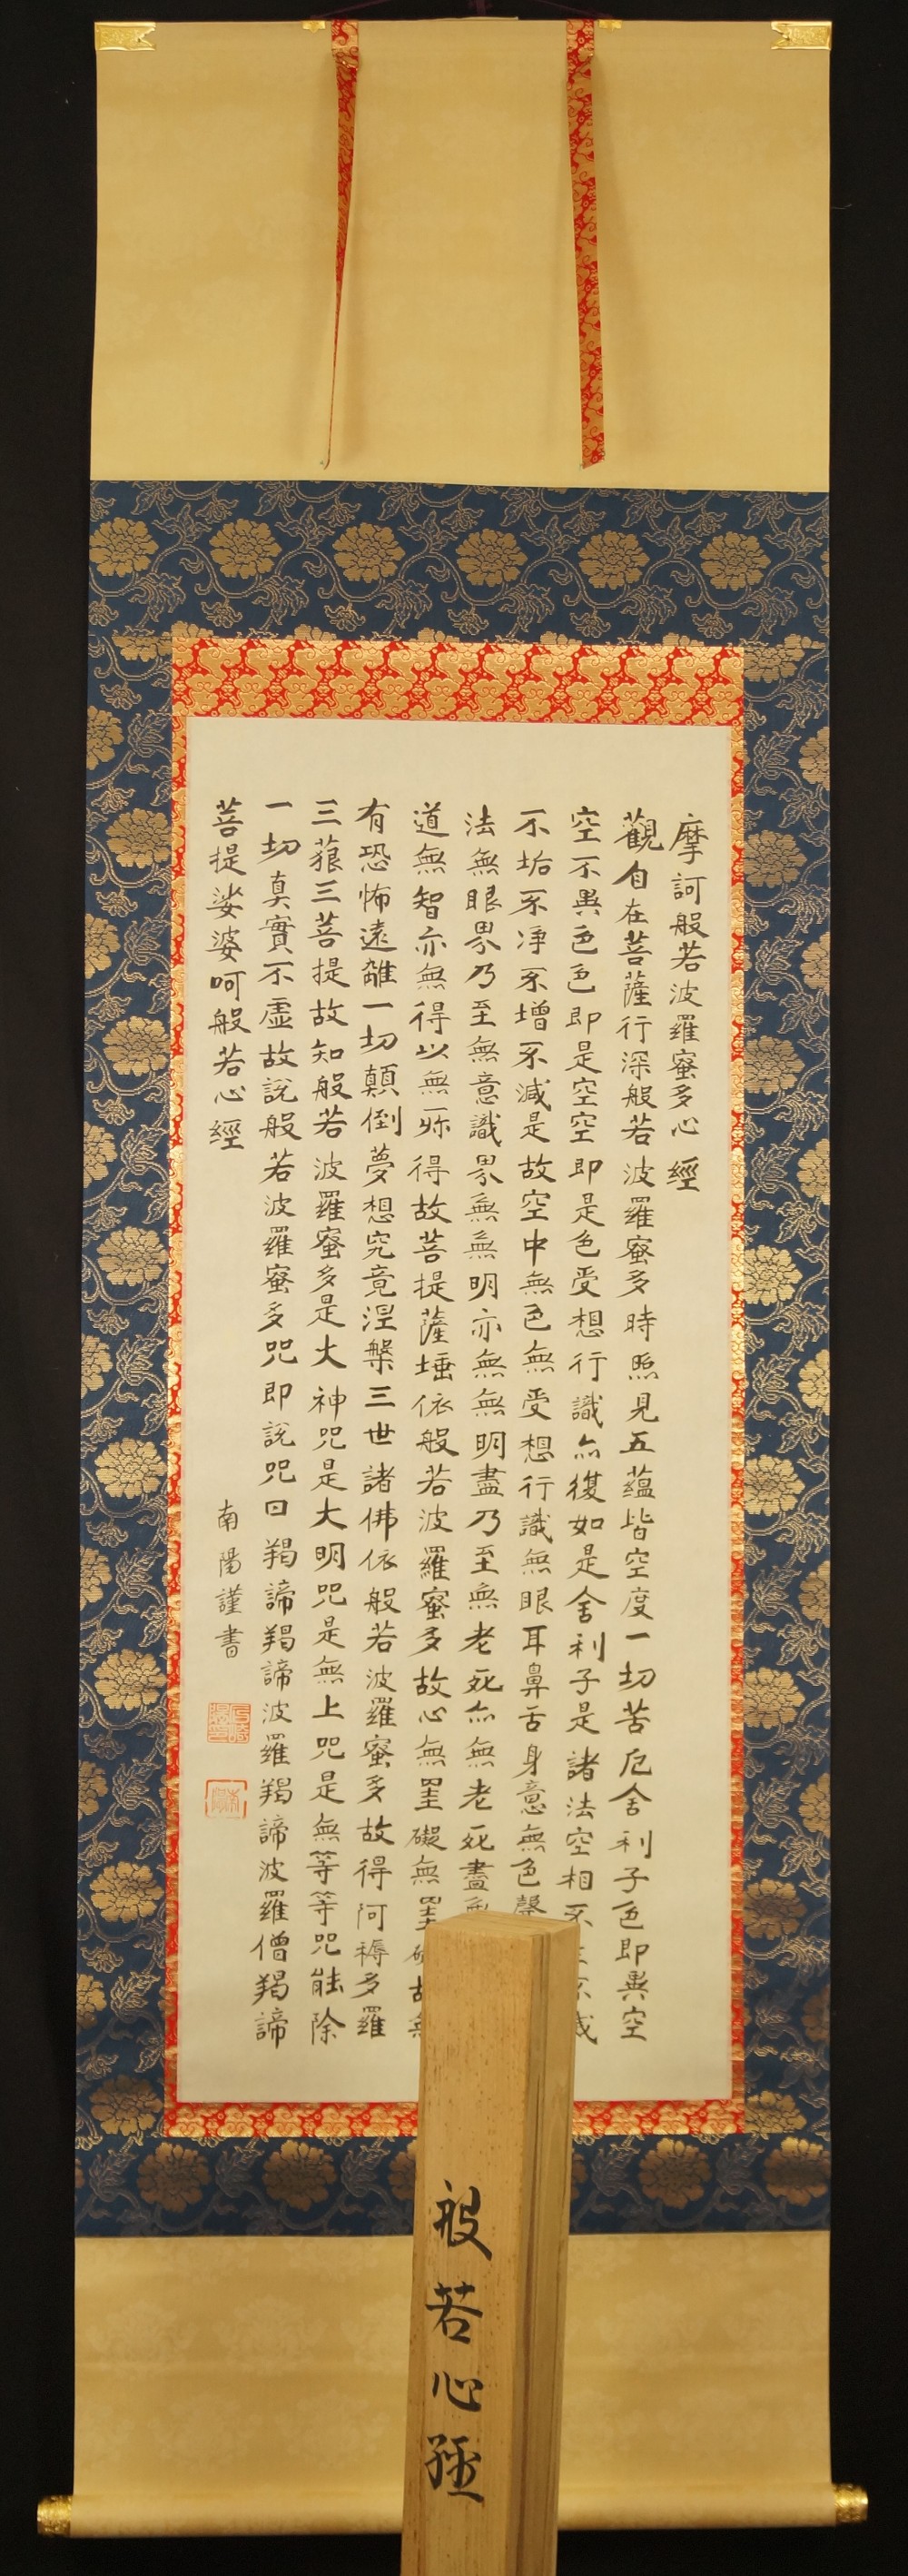 摩訶般若波羅蜜多心經
觀自在菩薩行深般若波羅蜜多時照見五蘊皆空度一切苦厄舍利子色即異空
空不異色色即是空空即是色受想行識亦復如是舍利子是諸法空相不
不垢不凈不增不減是故空中無色無受想行識無眼耳鼻舌身意無色聲
法無眼界乃至無意識界無無明亦無無明盡乃至無老死亦無老死盡無
道無智亦無得以無所得故菩提薩埵依般若波羅蜜多故心無罣礙無罣礙故無
有恐怖遠離一切顛倒夢想究竟涅槃三世諸佛依般若波羅蜜多故得阿耨多羅
三藐三菩提故知般若波羅蜜多是大神咒是大明咒是無上咒是無等等咒能除
一切真實不虛故說般若波羅蜜多咒即說咒曰羯諦羯諦波羅羯諦波羅僧羯諦
菩提娑婆呵般若心經
南陽謹書
般若心経